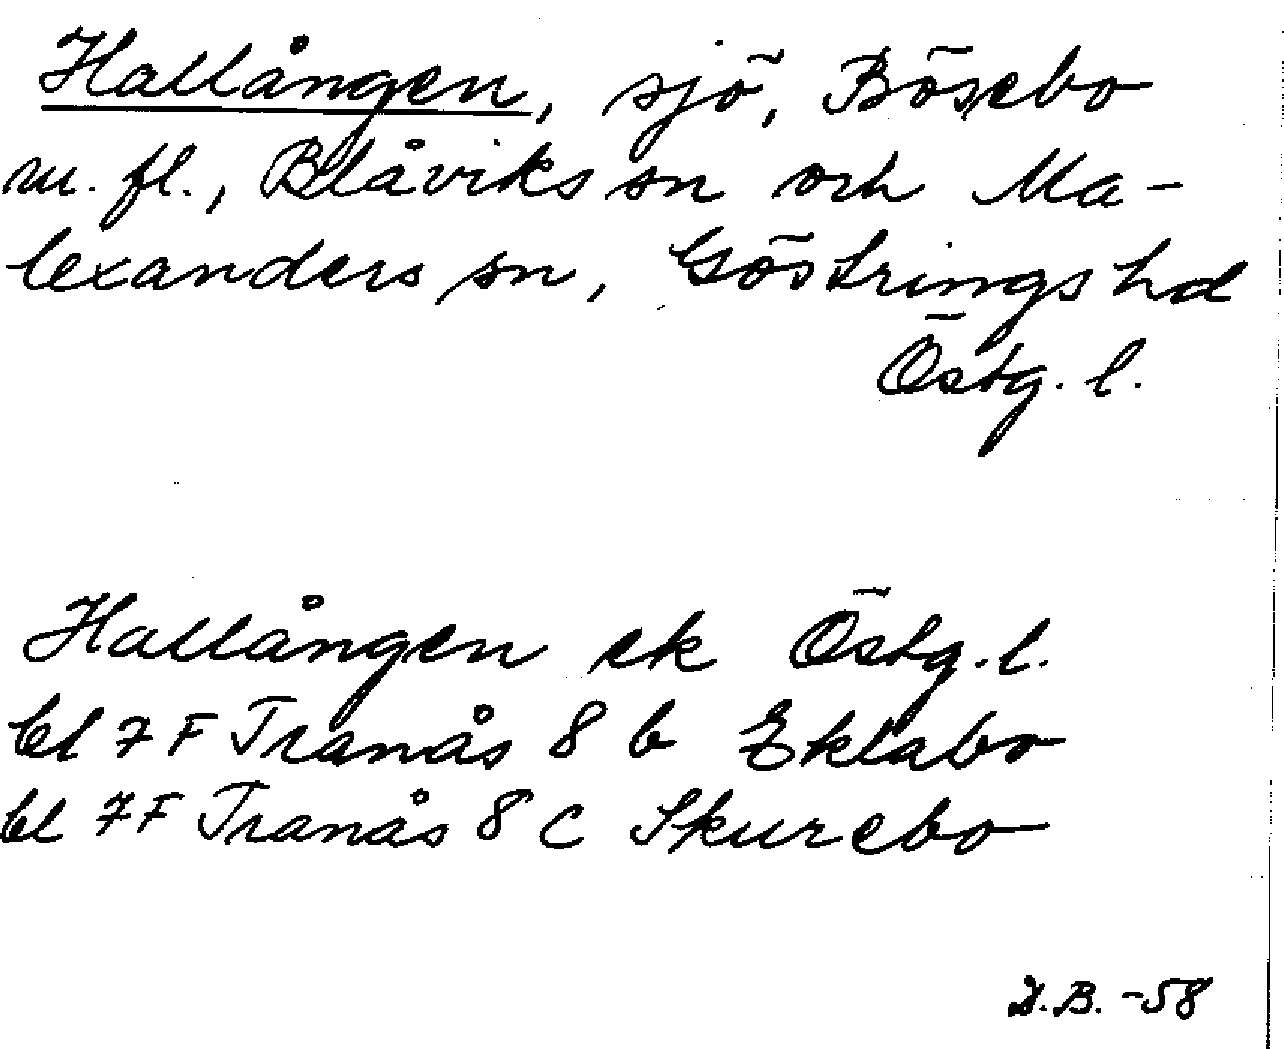 Hallången, sjö, Bösebo
m. fl., Blåviks sn och Ma-
lexanders sn, Göstrings hd
Östg. l.
Hallången ek Östg. l.
bl 7 F Tranås 8 b Eklabo
bl 7 F Tranås 8 c Skurebo
B. -58